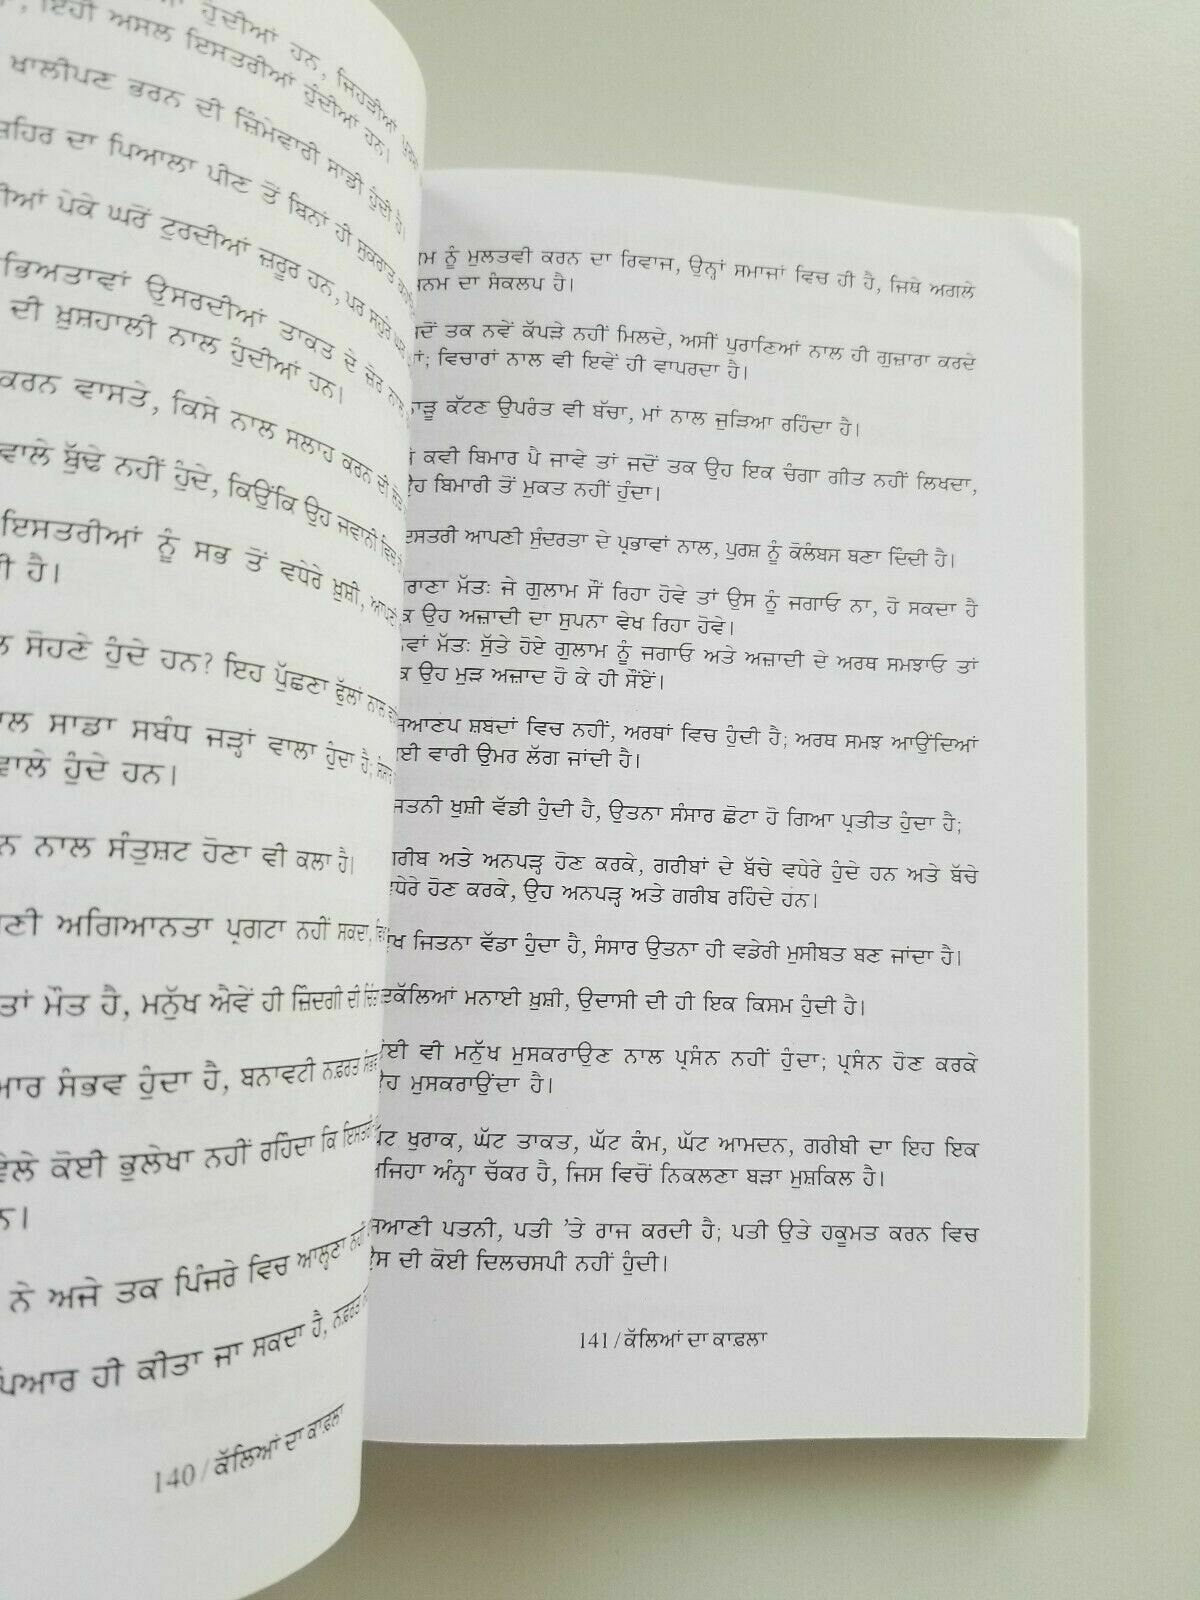 ਹੁੰਦੀਆਂ ਹਨ, ਜਿਹੜੀਆਂ
ਇਹੀ ਅਸਲ ਇਸਤਰੀਆਂ ਹੁੰਦੀਆਂ ਹਨ।
ਖਾਲੀਪਣ ਭਰਨ ਦੀ ਜ਼ਿੰਮੇਵਾਰੀ ਸਾਡੀ ਹੁੰਦੀ ਹੈ।
ਦਾ ਪਿਆਲਾ ਪੀਣ ਤੋਂ ਬਿਨਾਂ ਹੀ ਸੁਕਰਾਤ
ਪੇਕੇ ਘਰੋਂ ਟੁਰਦੀਆਂ ਜ਼ਰੂਰ ਹਨ, ਪਰ ਸਹੁਰੇ
ਉਸਰਦੀਆਂ ਤਾਕਤ ਦੇ ਜ਼ੋਰ ਨਾਲ
ਦੀ ਖ਼ੁਸ਼ਹਾਲੀ ਨਾਲ ਹੁੰਦੀਆਂ ਹਨ।
ਕਰਨ ਵਾਸਤੇ, ਕਿਸੇ ਨਾਲ ਸਲਾਹ ਕਰਨ ਦੀ
ਵਾਲੇ ਬੁੱਢੇ ਨਹੀਂ ਹੁੰਦੇ, ਕਿਉਂਕਿ ਉਹ ਜਵਾਨੀ ਵਿਚ
ਇਸਤਰੀਆਂ ਨੂੰ ਸਭ ਤੋਂ ਵਧੇਰੇ ਖ਼ੁਸ਼ੀ,
ਹੈ।
ਸੋਹਣੇ ਹੁੰਦੇ ਹਨ? ਇਹ ਪੁੱਛਣਾ ਫੁੱਲਾਂ ਨਾਲ
ਸਾਡਾ ਸਬੰਧ ਜੜ੍ਹਾਂ ਵਾਲਾ ਹੁੰਦਾ ਹੈ;
ਵਾਲੇ ਹੁੰਦੇ ਹਨ।
ਨਾਲ ਸੰਤੁਸ਼ਟ ਹੋਣਾ ਵੀ ਕਲਾ ਹੈ।
ਅਗਿਆਨਤਾ ਪ੍ਰਗਟਾ ਨਹੀਂ ਸਕਦਾ,
ਤਾਂ ਮੌਤ ਹੈ, ਮਨੁੱਖ ਐਵੇਂ ਹੀ ਜ਼ਿੰਦਗੀ ਦੀ
ਸੰਭਵ ਹੁੰਦਾ ਹੈ, ਬਨਾਵਟੀ ਨਫ਼ਰਤ
ਵੇਲੇ ਕੋਈ ਭੁਲੇਖਾ ਨਹੀਂ ਰਹਿੰਦਾ ਕਿ
ਨੇ ਅਜੇ ਤਕ ਪਿੰਜਰੇ ਵਿਚ ਆਲ੍ਹਣਾ
ਪਿਆਰ ਹੀ ਕੀਤਾ ਜਾ ਸਕਦਾ ਹੈ, ਨਫ਼ਰਤ
140 / ਕੱਲਿਆਂ ਦਾ ਕਾਫ਼ਲਾ
ਨੂੰ ਮੁਲਤਵੀ ਕਰਨ ਦਾ ਰਿਵਾਜ, ਉਨ੍ਹਾਂ ਸਮਾਜਾਂ ਵਿਚ ਹੀ ਹੈ, ਜਿਥੇ ਅਗਲੇ
ਦਾ ਸੰਕਲਪ ਹੈ।
ਤਕ ਨਵੇਂ ਕੱਪੜੇ ਨਹੀਂ ਮਿਲਦੇ, ਅਸੀਂ ਪੁਰਾਣਿਆਂ ਨਾਲ ਹੀ ਗੁਜ਼ਾਰਾ ਕਰਦੇ
ਵਿਚਾਰਾਂ ਨਾਲ ਵੀ ਇਵੇਂ ਹੀ ਵਾਪਰਦਾ ਹੈ।
ਕੱਟਣ ਉਪਰੰਤ ਵੀ ਬੱਚਾ, ਮਾਂ ਨਾਲ ਜੁੜਿਆ ਰਹਿੰਦਾ ਹੈ।
ਕਵੀ ਬਿਮਾਰ ਪੈ ਜਾਵੇ ਤਾਂ ਜਦੋਂ ਤਕ ਉਹ ਇਕ ਚੰਗਾ ਗੀਤ ਨਹੀਂ ਲਿਖਦਾ,
ਬਿਮਾਰੀ ਤੋਂ ਮੁਕਤ ਨਹੀਂ ਹੁੰਦਾ।
ਆਪਣੀ ਸੁੰਦਰਤਾ ਦੇ ਪ੍ਰਭਾਵਾਂ ਨਾਲ, ਪੁਰਸ਼ ਨੂੰ ਕੋਲੰਬਸ ਬਣਾ ਦਿੰਦੀ ਹੈ।
ਮੱਤ: ਜੇ ਗੁਲਾਮ ਸੌਂ ਰਿਹਾ ਹੋਵੇ ਤਾਂ ਉਸ ਨੂੰ ਜਗਾਓ ਨਾ, ਹੋ ਸਕਦਾ ਹੈ
ਉਹ ਅਜ਼ਾਦੀ ਦਾ ਸੁਪਨਾ ਵੇਖ ਰਿਹਾ ਹੋਵੇ।
ਮੱਤ: ਸੁੱਤੇ ਹੋਏ ਗੁਲਾਮ ਨੂੰ ਜਗਾਓ ਅਤੇ ਅਜ਼ਾਦੀ ਦੇ ਅਰਥ ਸਮਝਾਓ ਤਾਂ
ਉਹ ਮੁੜ ਅਜ਼ਾਦ ਹੋ ਕੇ ਹੀ ਸੌਂਵੇਂ।
ਸ਼ਬਦਾਂ ਵਿਚ ਨਹੀਂ, ਅਰਥਾਂ ਵਿਚ ਹੁੰਦੀ ਹੈ; ਅਰਥ ਸਮਝ ਆਉਂਦਿਆਂ
ਵਾਰੀ ਉਮਰ ਲੱਗ ਜਾਂਦੀ ਹੈ।
ਖੁਸ਼ੀ ਵੱਡੀ ਹੁੰਦੀ ਹੈ, ਉਤਨਾ ਸੰਸਾਰ ਛੋਟਾ ਹੋ ਗਿਆ ਪ੍ਰਤੀਤ ਹੁੰਦਾ ਹੈ;
ਗਰੀਬ ਅਤੇ ਅਨਪੜ੍ਹ ਹੋਣ ਕਰਕੇ, ਗਰੀਬਾਂ ਦੇ ਬੱਚੇ ਵਧੇਰੇ ਹੁੰਦੇ ਹਨ ਅਤੇ ਬੱਚੇ
ਵਧੇਰੇ ਹੋਣ ਕਰਕੇ, ਉਹ ਅਨਪੜ੍ਹ ਅਤੇ ਗਰੀਬ ਰਹਿੰਦੇ ਹਨ।
ਜਿਤਨਾ ਵੱਡਾ ਹੁੰਦਾ ਹੈ, ਸੰਸਾਰ ਉਤਨਾ ਹੀ ਵਡੇਰੀ ਮੁਸੀਬਤ ਬਣ ਜਾਂਦਾ ਹੈ।
ਮਨਾਈ ਖ਼ੁਸ਼ੀ, ਉਦਾਸੀ ਦੀ ਹੀ ਇਕ ਕਿਸਮ ਹੁੰਦੀ ਹੈ।
ਵੀ ਮਨੁੱਖ ਮੁਸਕਰਾਉਣ ਨਾਲ ਪ੍ਰਸੰਨ ਨਹੀਂ ਹੁੰਦਾ; ਪ੍ਰਸੰਨ ਹੋਣ ਕਰਕੇ
ਮੁਸਕਰਾਉਂਦਾ ਹੈ।
ਖੁਰਾਕ, ਘੱਟ ਤਾਕਤ, ਘੱਟ ਕੰਮ, ਘੱਟ ਆਮਦਨ, ਗਰੀਬੀ ਦਾ ਇਹ ਇਕ
ਅੰਨ੍ਹਾ ਚੱਕਰ ਹੈ, ਜਿਸ ਵਿਚੋਂ ਨਿਕਲਣਾ ਬੜਾ ਮੁਸ਼ਕਿਲ ਹੈ।
ਪਤਨੀ, ਪਤੀ 'ਤੇ ਰਾਜ ਕਰਦੀ ਹੈ; ਪਤੀ ਉਤੇ ਹਕੂਮਤ ਕਰਨ ਵਿਚ
ਦੀ ਕੋਈ ਦਿਲਚਸਪੀ ਨਹੀਂ ਹੁੰਦੀ।
141 / ਕੱਲਿਆਂ ਦਾ ਕਾਫ਼ਲਾ